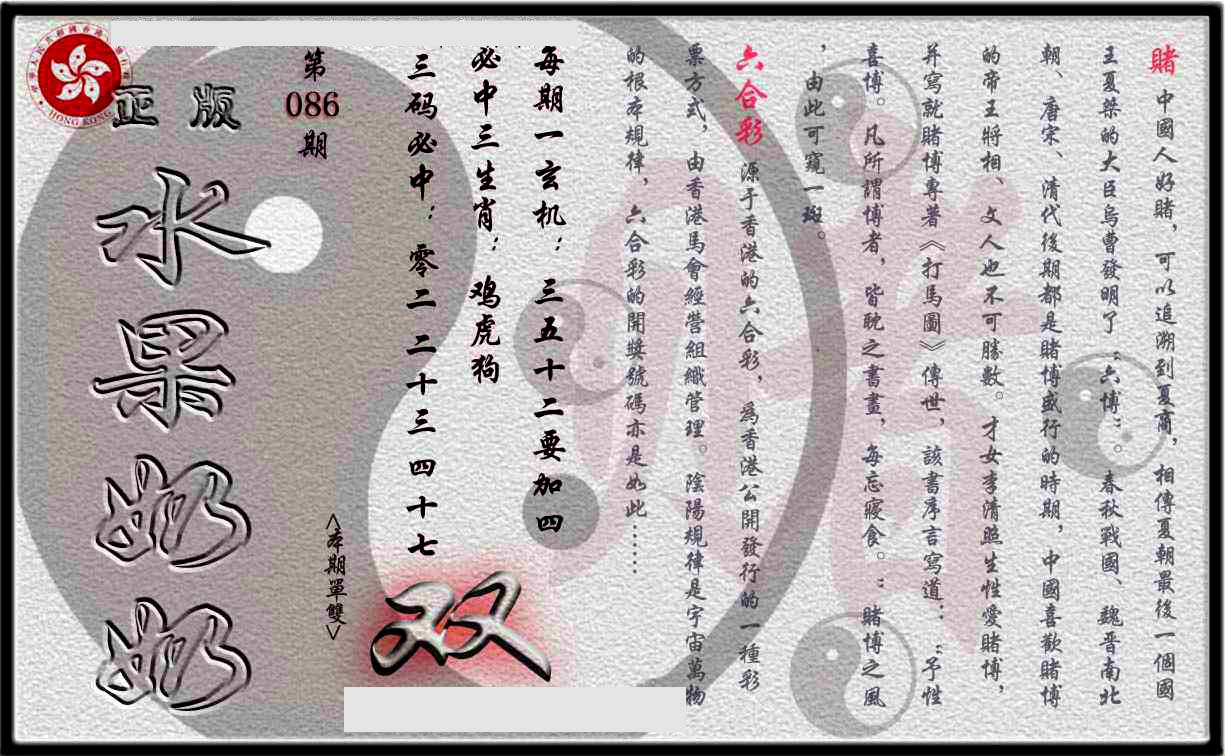 賭 中國人好賭，可以追溯到夏商，相傳夏朝最後一個國
王夏桀的大臣烏曹發明了“六博”。春秋戰國、魏晉南北
朝、唐宋、清代後期都是賭博盛行的時期，中國喜歡賭博
的帝王將相、文人也不可勝數。才女李清照生性愛賭博，
并寫就賭博專著《打馬圖》傳世，該書序言寫道：“予性
喜博。凡所謂博者，皆耽之書畫，每忘寢食。”賭博之風
，由此可窺一斑。
六合彩 源于香港的六合彩，為香港公開發行的一種彩
票方式，由香港馬會經營組織管理。陰陽規律是宇宙萬物
的根本規律，六合彩的開獎號碼亦是如此……
每期一玄机：三五十二要加四
必中三生肖：鸡虎狗
三码必中：零二二十三四十七
双
<本期單雙>
第
086
期
正版
水果奶奶
HONG KONG